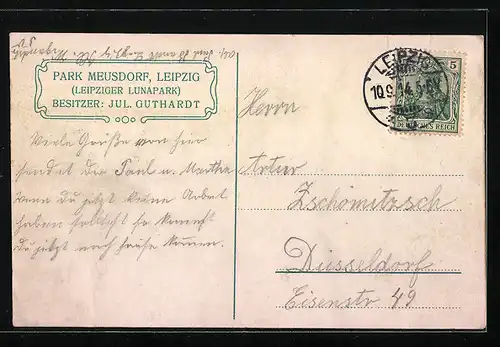 PARK MEUSDORF, LEIPZIG
(LEIPZIGER LUNAPARK)
BESITZER: JUL. GUTHARDT
Viele Grüße von hier
sendet dir Paul u. Martha
wenn du jetzt keine Arbeit
haben so kannst
Du jetzt nach Hause kommen.
LEIPZIG
10.9.14.
5
DEUTSCHES REICH
Herrn
Artur
Zschömitzsch
Düsseldorf
Eisenstr 49